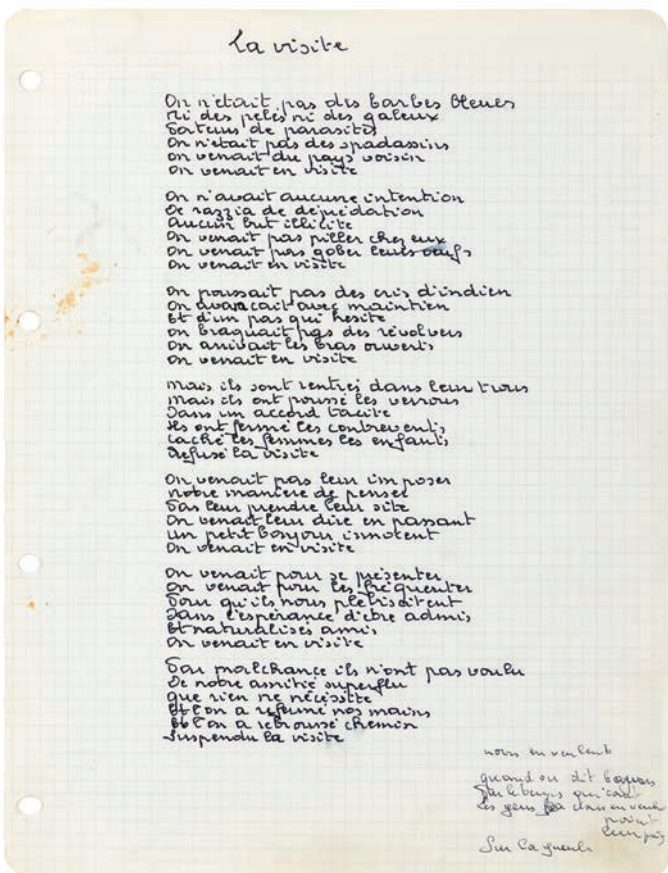 La visite
On n'était pas des barbes bleues
Ni des pelés ni des galeux
Porteurs de parasites
On n'était pas des spadassins
On venait du pays voisin
On venait en visite
On n'avait aucune intention
De razzia de déprédation
Aucun but illicite
On venait pas piller chez eux
On venait pas gober leurs oeufs
On venait en visite
On poussait pas des cris d'indien
On avançait avec maintien
Et d'un pas qui hésite
On braquait pas des révolvers
On arrivait les bras ouverts
On venait en visite
Mais ils sont rentrés dans leur trous
Mais ils ont poussé les verrous
Dans un accord tacite
Ils ont fermé les contrevents
Caché les femmes les enfants
Refusé la visite
On venait pas leur imposer
Notre manière de penser
Pas leur prendre leur site
On venait leur dire en passant
Un petit bonjour innocent
On venait en visite
On venait pour se présenter
On venait pour les fréquenter
Pour qu'ils nous plébiscitent
Dans l'espérance d'être admis
Et naturalisés amis
On venait en visite
Par malchance ils n'ont pas voulu
De notre amitié superflu
Que rien ne nécessite
Et l'on a refermé nos mains
Et l'on a rebroussé chemin
Suspendu la visite
nous en veulent
quand on dit
les gens
Sur la gueule